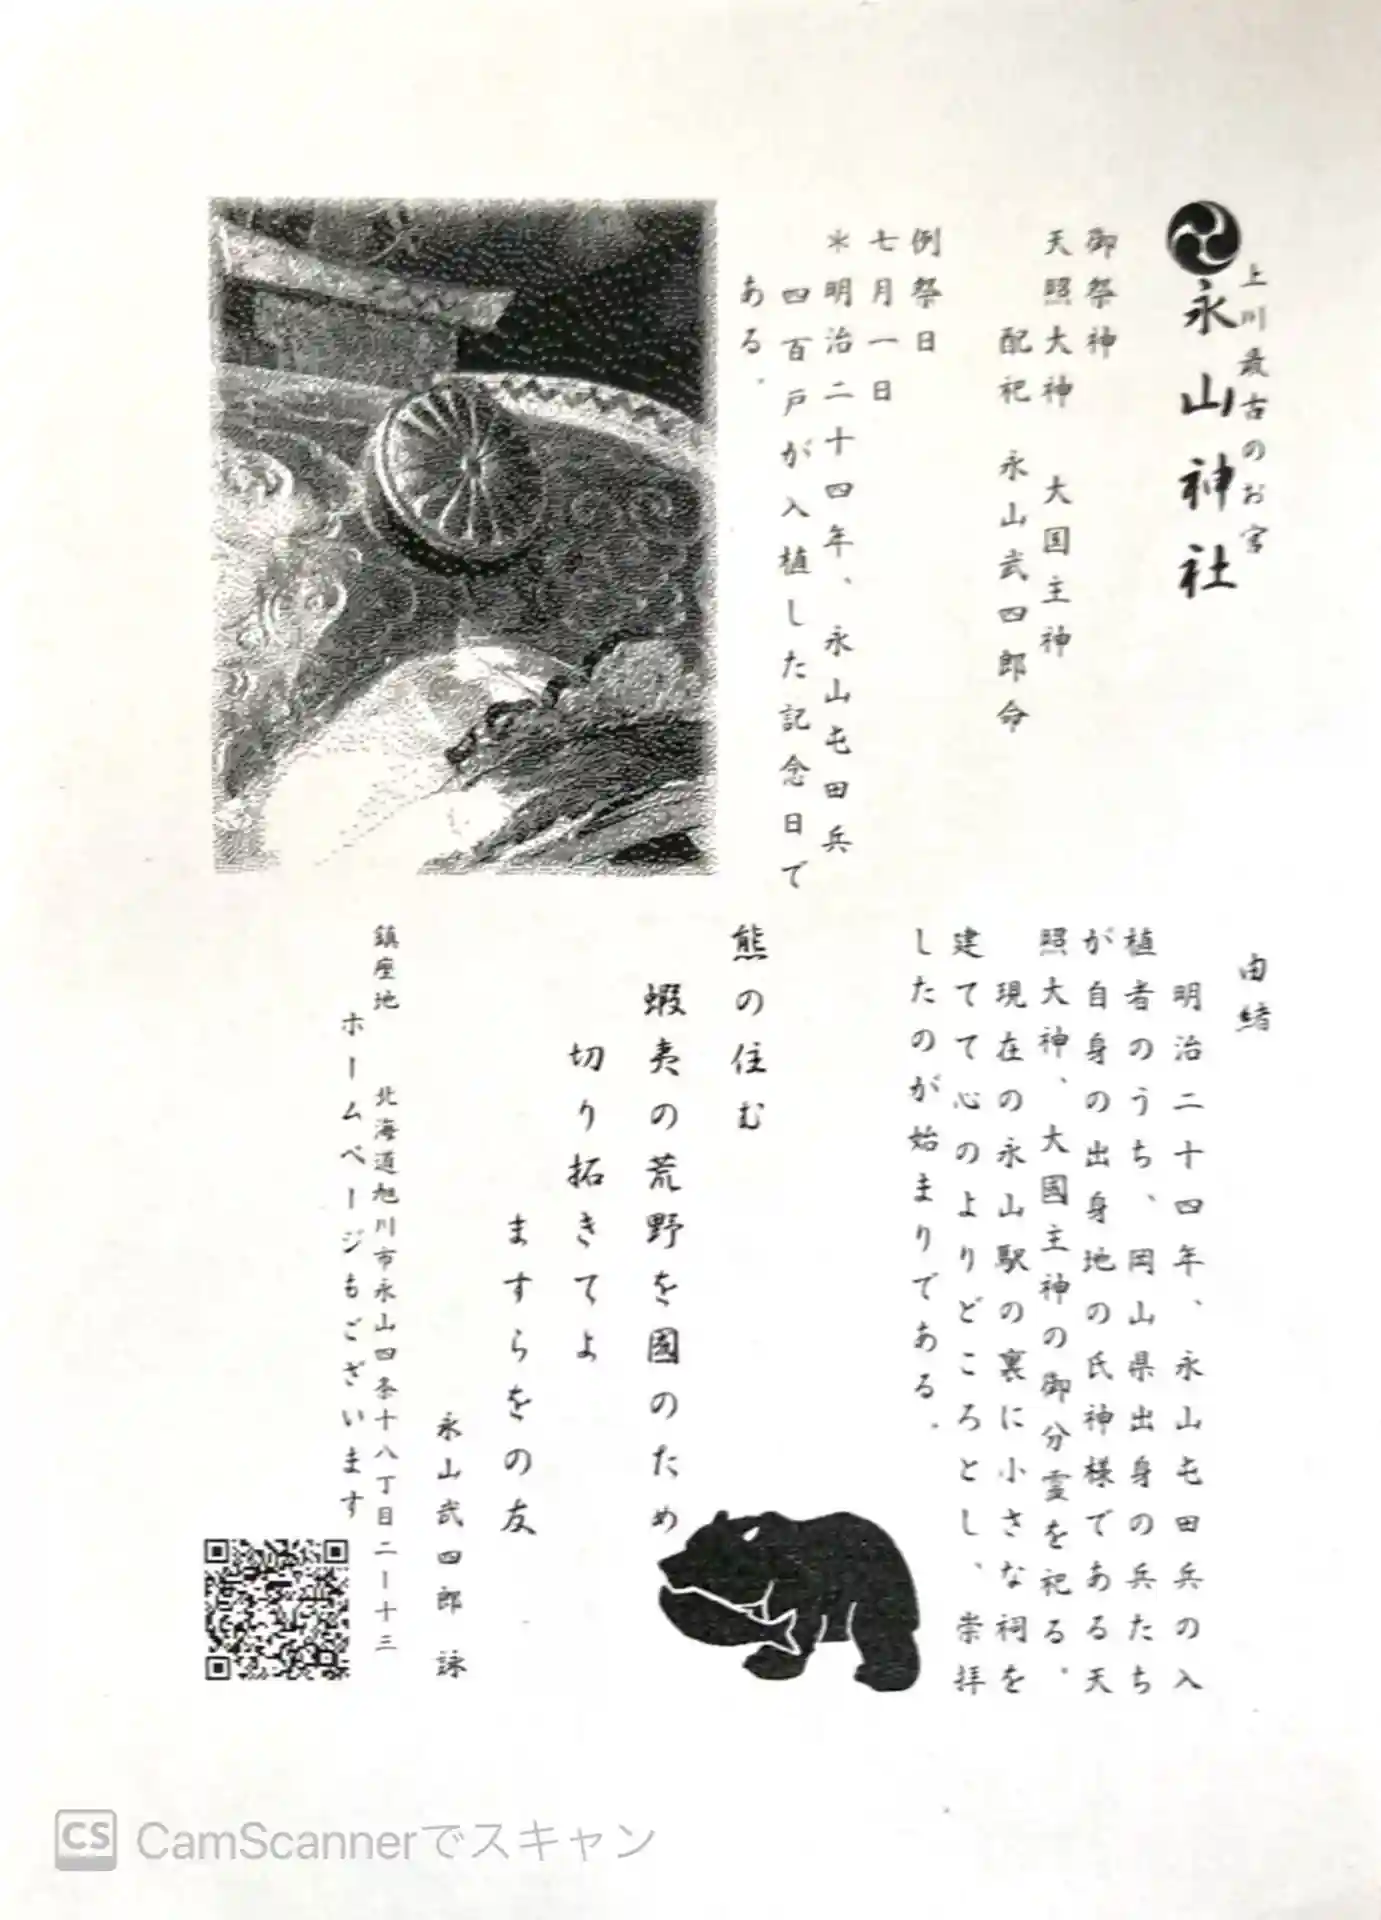 上川最古のお宮
永山神社
御祭神
天照大神　大国主神
配祀　永山武四郎命
例祭日
七月一日
＊明治二十四年、永山屯田兵
四百戸が入植した記念日で
ある．
由緒
明治二十四年、永山屯田兵の入
植者のうち、岡山県出身の兵たち
が自身の出身地の氏神様である天
照大神、大國主神の御分霊を祀る．
現在の永山駅の裏に小さな祠を
建てて心のよりどころとし、崇拝
したのが始まりである．
熊の住む
蝦夷の荒野を國のため
切り拓きてよ
ますらをの友
永山武四郎　詠
鎮座地　北海道旭川市永山四条十八丁目二ー十三
ホームページもございます
CS CamScannerでスキャン